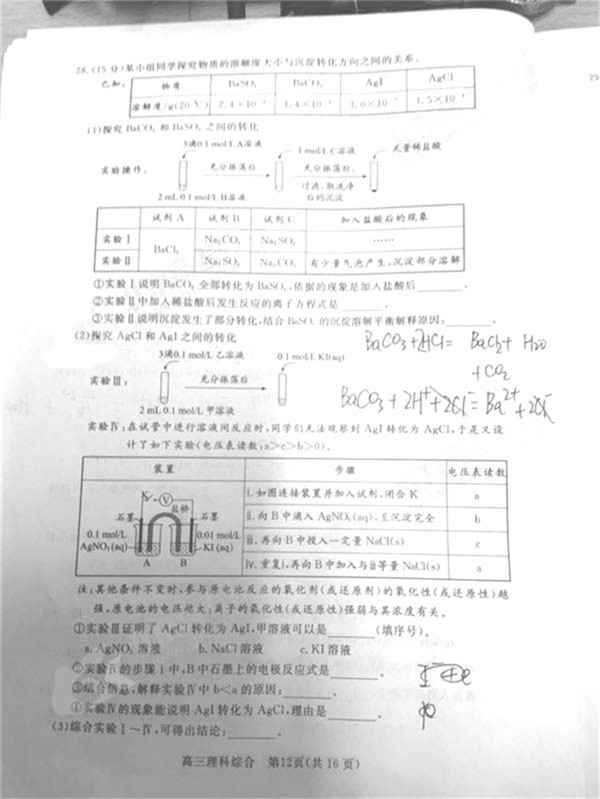 28.(15分)某小组同学探究物质的溶解度大小与沉淀转化方向之间的关系。
已知:
物质 BaSO₄ BaCO₃ AgI AgCl
溶解度/g(20℃) 2.4×10⁻⁴ 1.4×10⁻³ 3.0×10⁻⁷ 1.5×10⁻⁴
(1)探究 BaCO₃ 和 BaSO₄ 之间的转化
3滴0.1 mol/L A溶液 1 mol/L C溶液 足量稀盐酸
实验操作: 充分振荡后 充分振荡后,
过滤,取洗净
后的沉淀
2 mL 0.1 mol/L B溶液
试剂 A 试剂 B 试剂 C 加入盐酸后的现象
实验Ⅰ BaCl₂ Na₂CO₃ Na₂SO₄ ……
实验Ⅱ Na₂SO₄ Na₂CO₃ 有少量气泡产生,沉淀部分溶解
①实验Ⅰ说明 BaCO₃ 全部转化为 BaSO₄,依据的现象是加入盐酸后______。
②实验Ⅱ中加入稀盐酸后发生反应的离子方程式是______。
③实验Ⅱ说明沉淀发生了部分转化,结合 BaSO₄ 的沉淀溶解平衡解释原因:______。
BaCO₃+2HCl= BaCl₂+ H₂O
+CO₂
(2)探究 AgCl 和 AgI 之间的转化
3滴0.1 mol/L 乙溶液 0.1 mol/L KI(aq)
实验Ⅲ: 充分振荡后
2 mL 0.1 mol/L 甲溶液
BaCO₃+2H⁺+2Cl⁻=Ba²⁺+2Cl⁻
实验Ⅳ:在试管中进行溶液间反应时,同学们无法观察到 AgI 转化为 AgCl,于是又设
计了如下实验(电压表读数:a>c>b>0)。
装置 步骤 电压表读数
ⅰ.如图连接装置并加入试剂,闭合 K a
ⅱ.向 B 中滴入 AgNO₃(aq),至沉淀完全 b
ⅲ.再向 B 中投入一定量 NaCl(s) c
ⅳ.重复ⅰ,再向 B 中加入与ⅲ等量 NaCl(s) a
K V
石墨 盐桥 石墨
0.1 mol/L
AgNO₃(aq)
0.01 mol/L
KI(aq)
A B
注:其他条件不变时,参与原电池反应的氧化剂(或还原剂)的氧化性(或还原性)越
强,原电池的电压越大;离子的氧化性(或还原性)强弱与其浓度有关。
①实验Ⅲ证明了 AgCl 转化为 AgI,甲溶液可以是______(填序号)。
a. AgNO₃ 溶液 b. NaCl 溶液 c. KI 溶液
②实验Ⅳ的步骤ⅰ中,B 中石墨上的电极反应式是______。
③结合信息,解释实验Ⅳ中 b<a 的原因:______。
④实验Ⅳ的现象能说明 AgI 转化为 AgCl,理由是______。
(3)综合实验Ⅰ~Ⅳ,可得出结论:______。
高三理科综合 第12页(共16页)
29